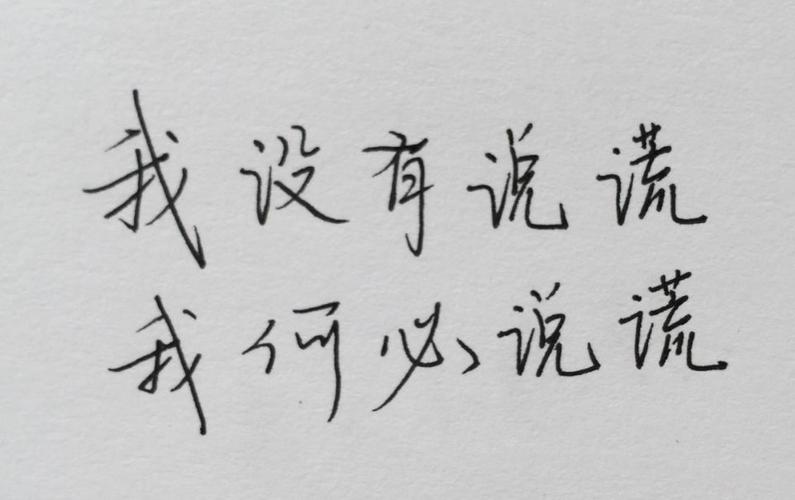 我没有说谎
我何必说谎